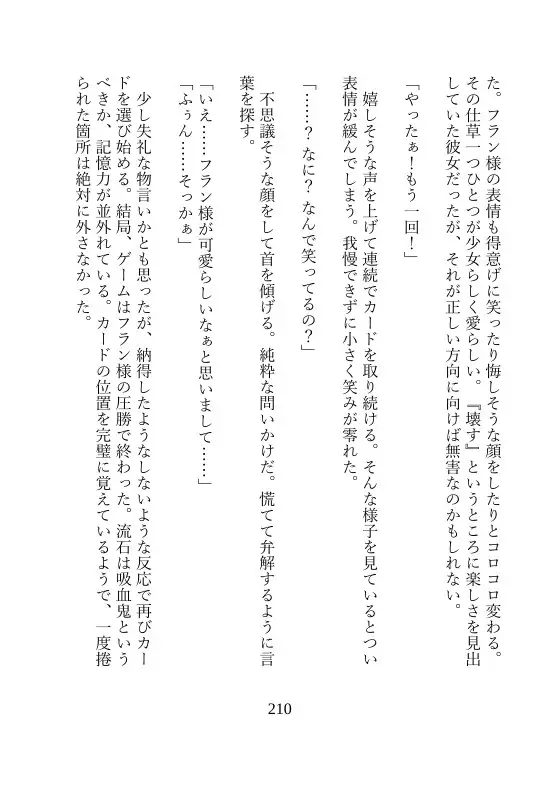 た。フラン様の表情も得意げに笑ったり悔しそうな顔をしたりとコロコロ変わる。
その仕草一つひとつが少女らしく愛らしい。『壊す』というところに楽しさを見出
していた彼女だったが、それが正しい方向に向けば無害なのかもしれない。
「やったぁ！もう一回！」
嬉しそうな声を上げて連続でカードを取り続ける。そんな様子を見ているとつい
表情が緩んでしまう。我慢できずに小さく笑みが零れた。
「……？なに？なんで笑ってるの？」
不思議そうな顔をして首を傾げる。純粋な問いかけだ。慌てて弁解するように言
葉を探す。
「いえ……フラン様が可愛らしいなぁと思いまして……」
「ふぅん……そっかぁ」
少し失礼な物言いかとも思ったが、納得したようなしないような反応で再びカー
ドを選び始める。結局、ゲームはフラン様の圧勝で終わった。流石は吸血鬼という
べきか、記憶力が並外れている。カードの位置を完璧に覚えているようで、一度捲
られた箇所は絶対に外さなかった。
210